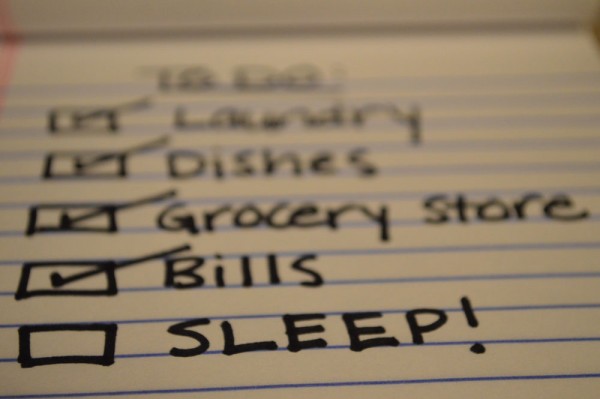 TO DO:
Laundry
Dishes
Grocery store
Bills
SLEEP!